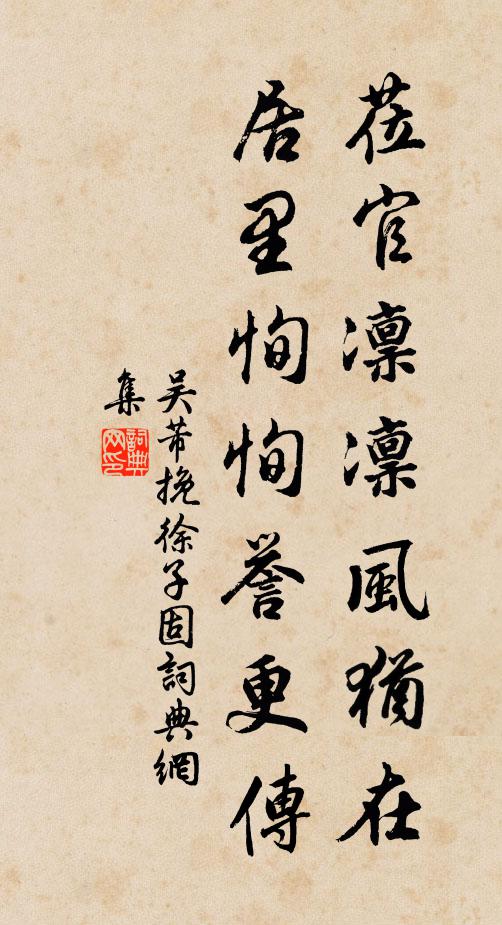 莅官凜凜風猶在
居里恂恂譽更傳
吳芾挽徐子固詞典網
集
詞典
网印